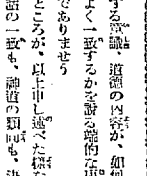 する意識、道德の内容が、如何
よく一致するかを語る端的な事
でありませう
ところが、以上申し述べた樣な
話の一致も、神道の類同も、決